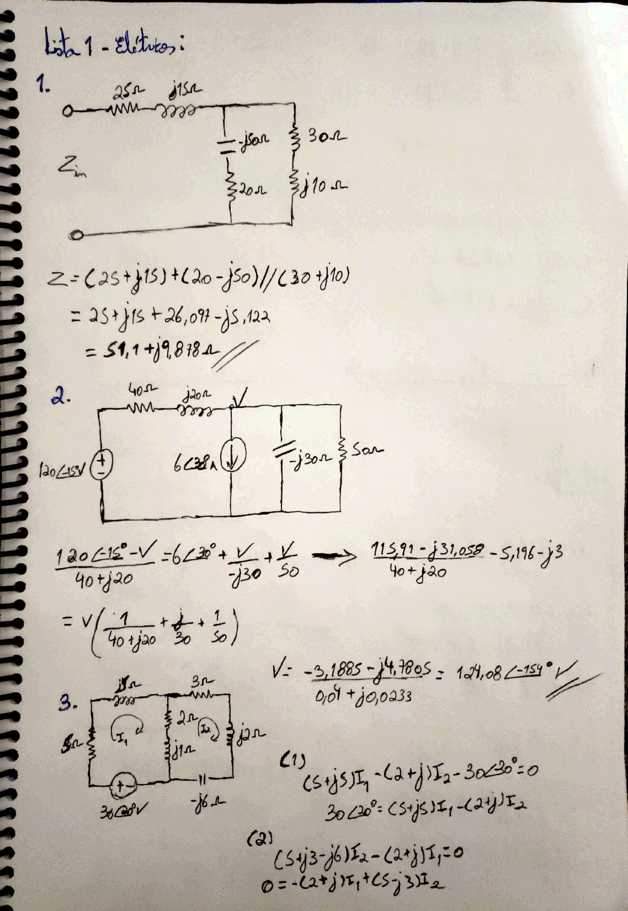 Lista 1 - Elétricos:
1.
25Ω j15Ω
-j50Ω 30Ω
Zin
20Ω j10Ω
Z = (25+j15)+(20-j50)//(30+j10)
= 25+j15+26,097-j5,122
= 51,1+j9,878Ω //
2.
40Ω j20Ω V
120∠-15V 6∠30A -j30Ω 50Ω
120∠-15°-V/40+j20 = 6∠30° + V/-j30 + V/50 → 115,91-j31,058/40+j20 - 5,196-j3
= V(1/40+j20 + j/30 + 1/50)
V = -3,1885-j4,7805/0,04+j0,0233 = 124,08∠-154° V //
3.
3Ω
I1 2Ω I2 j2Ω
j1Ω
-j6Ω
(1)
(5+j5)I1-(2+j)I2-30∠30°=0
30∠20°=(5+j5)I1-(2+j)I2
(2)
(5+j3-j6)I2-(2+j)I1=0
0=-(2+j)I1+(5-j3)I2